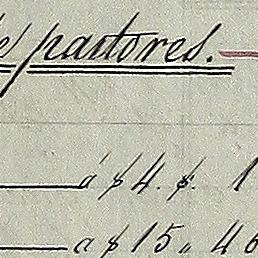 e pastores.
á $ 4. $. 1
a $ 15,, 46